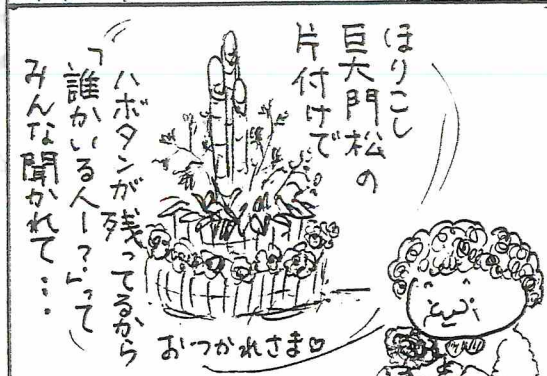 ほりこし
巨大門松の
片付けで
ハボタンが残ってるから
「誰かいる人ー？」って
みんな聞かれて…
おつかれさま♡